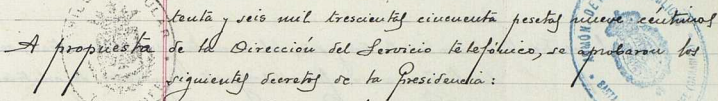 tenta y seis mil trescientas cincuenta pesetas nueve centimos
A propuesta de la Dirección del Servicio telefónico, se aprobaron los
siguientes decretos de la Presidencia: